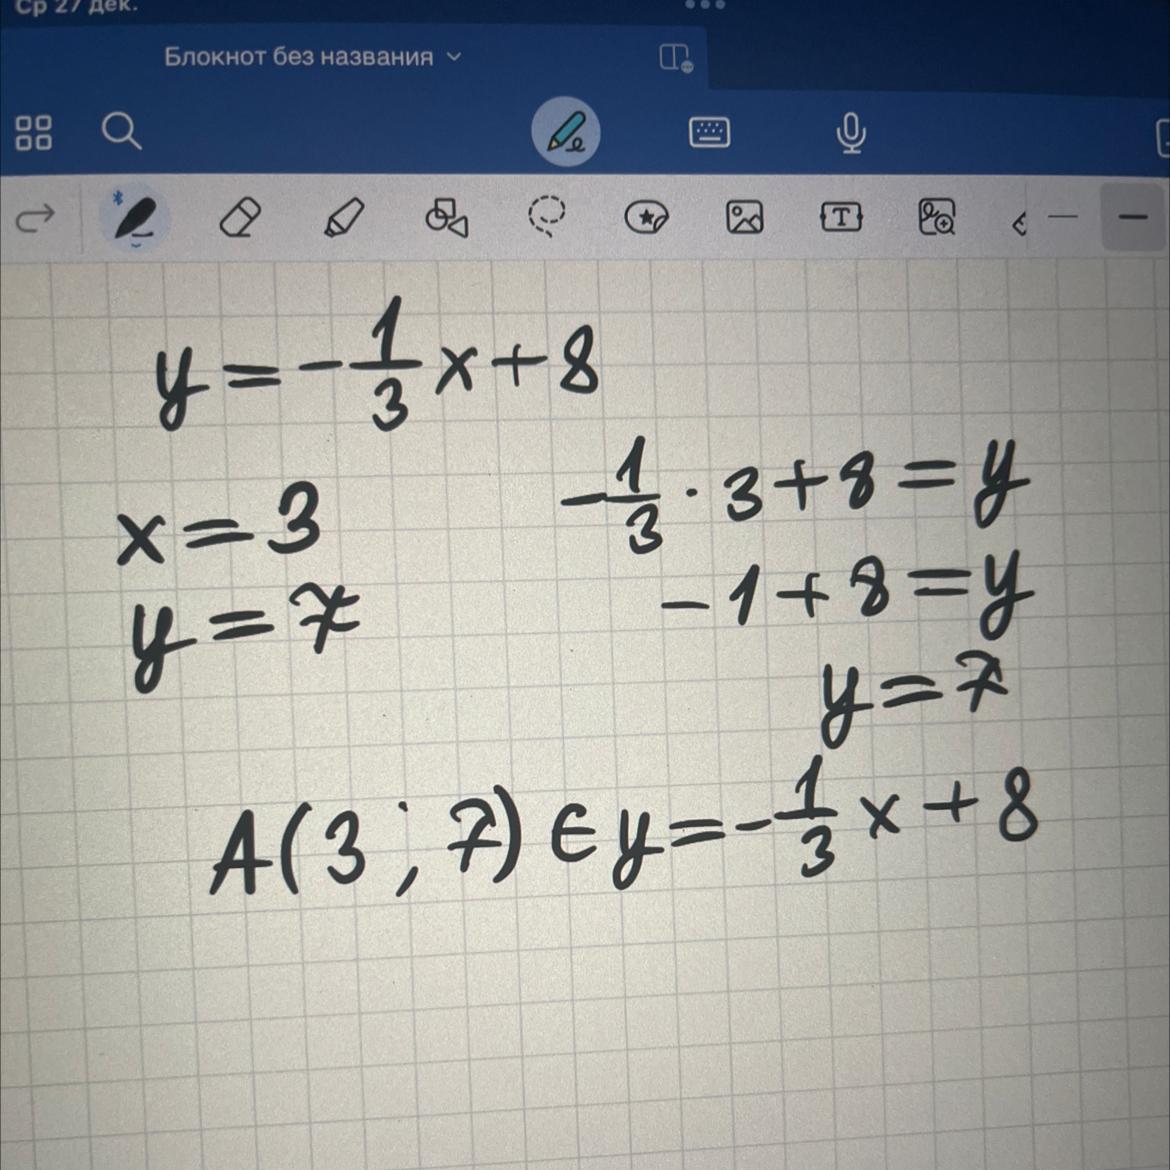 Ср 27 дек.
Блокнот без названия
T
y = -1/3 x + 8
x = 3
y = 7
-1/3 · 3 + 8 = y
-1 + 8 = y
y = 7
A(3 ; 7) ∈ y = -1/3 x + 8